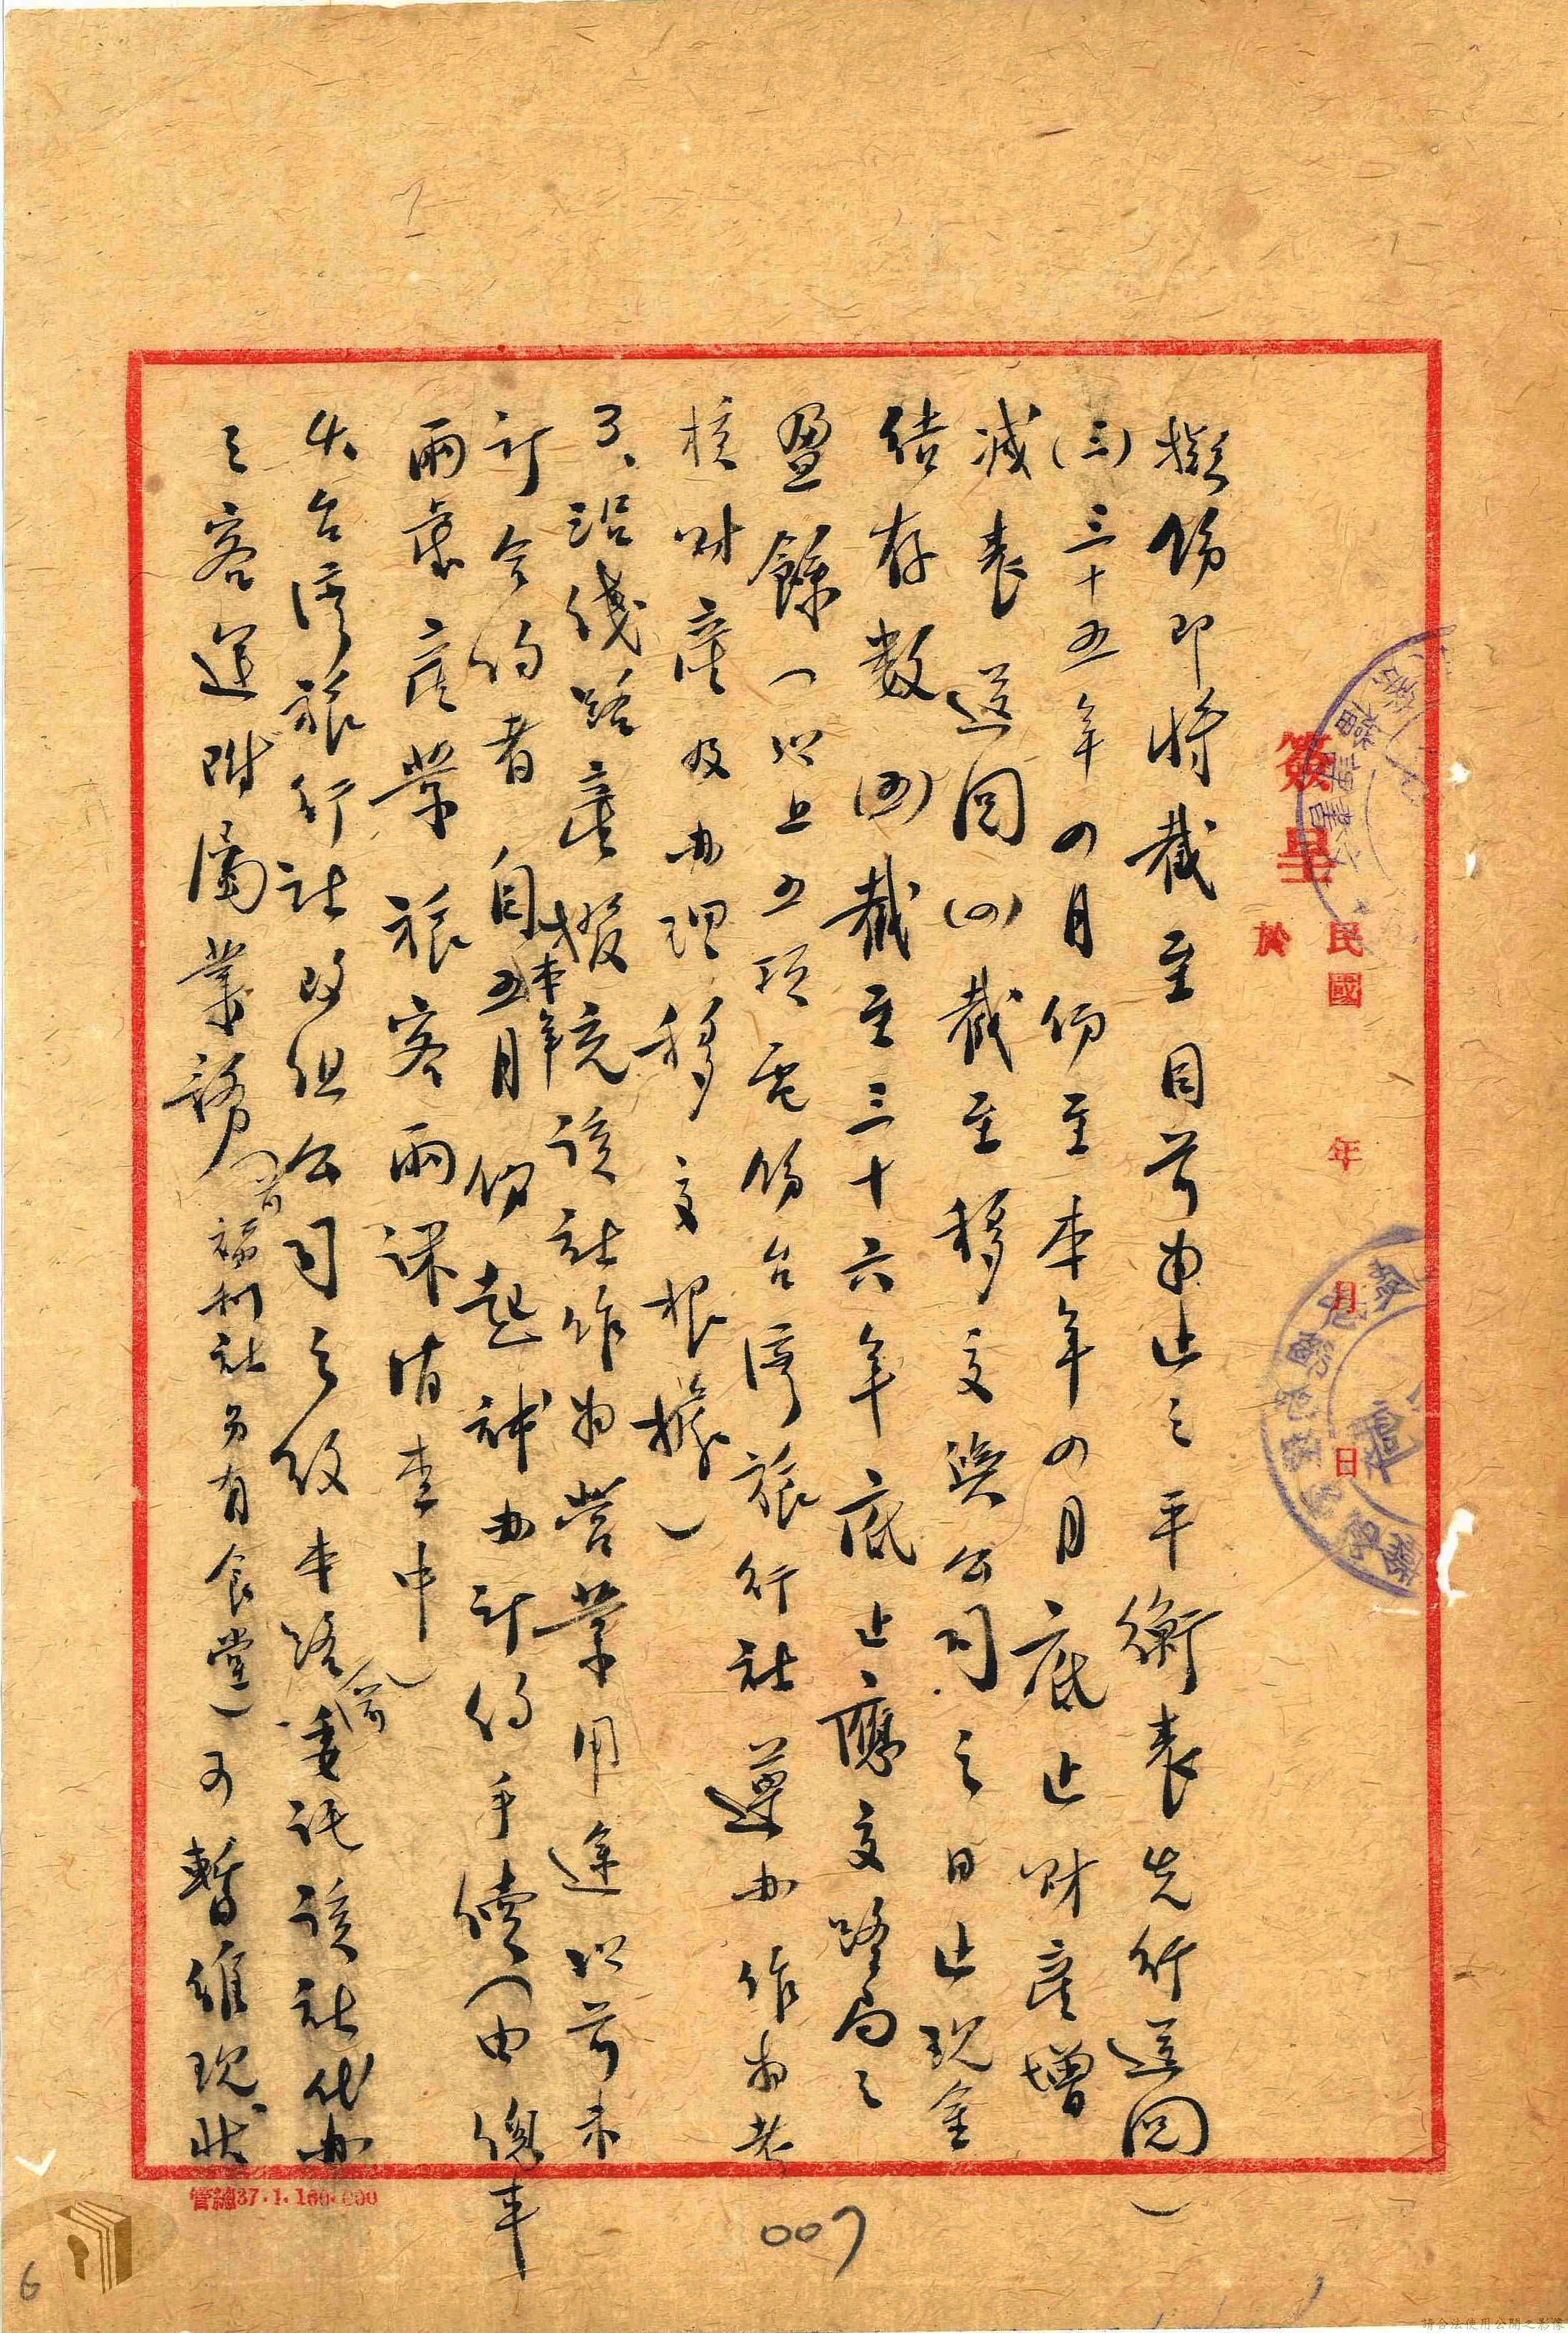 簽呈
民國 年 月 日
於
擬飭即將截至目前為止之平衡表先行送閱)
(三)三十五年四月份至本年四月底止財產增
減表送閱(四)截至移交與公司之日止現金
結存數(五)截至三十六年底止應交路局之
盈餘(以上五項電飭台灣旅行社遵办作為考
核財產及办理移交根據)
3、沿綫路產撥充該社作為營業用途以前未
訂合約者自本年五月份起補办訂约手續(由總車
兩處產業旅客兩課洽查中)
4、台灣旅行社改組公司之後本路前委託該社代办
之客運附屬業務(前福利社另有食堂)可暫維現狀
管總37.1.100.000
007
6
請合法使用公開之影像